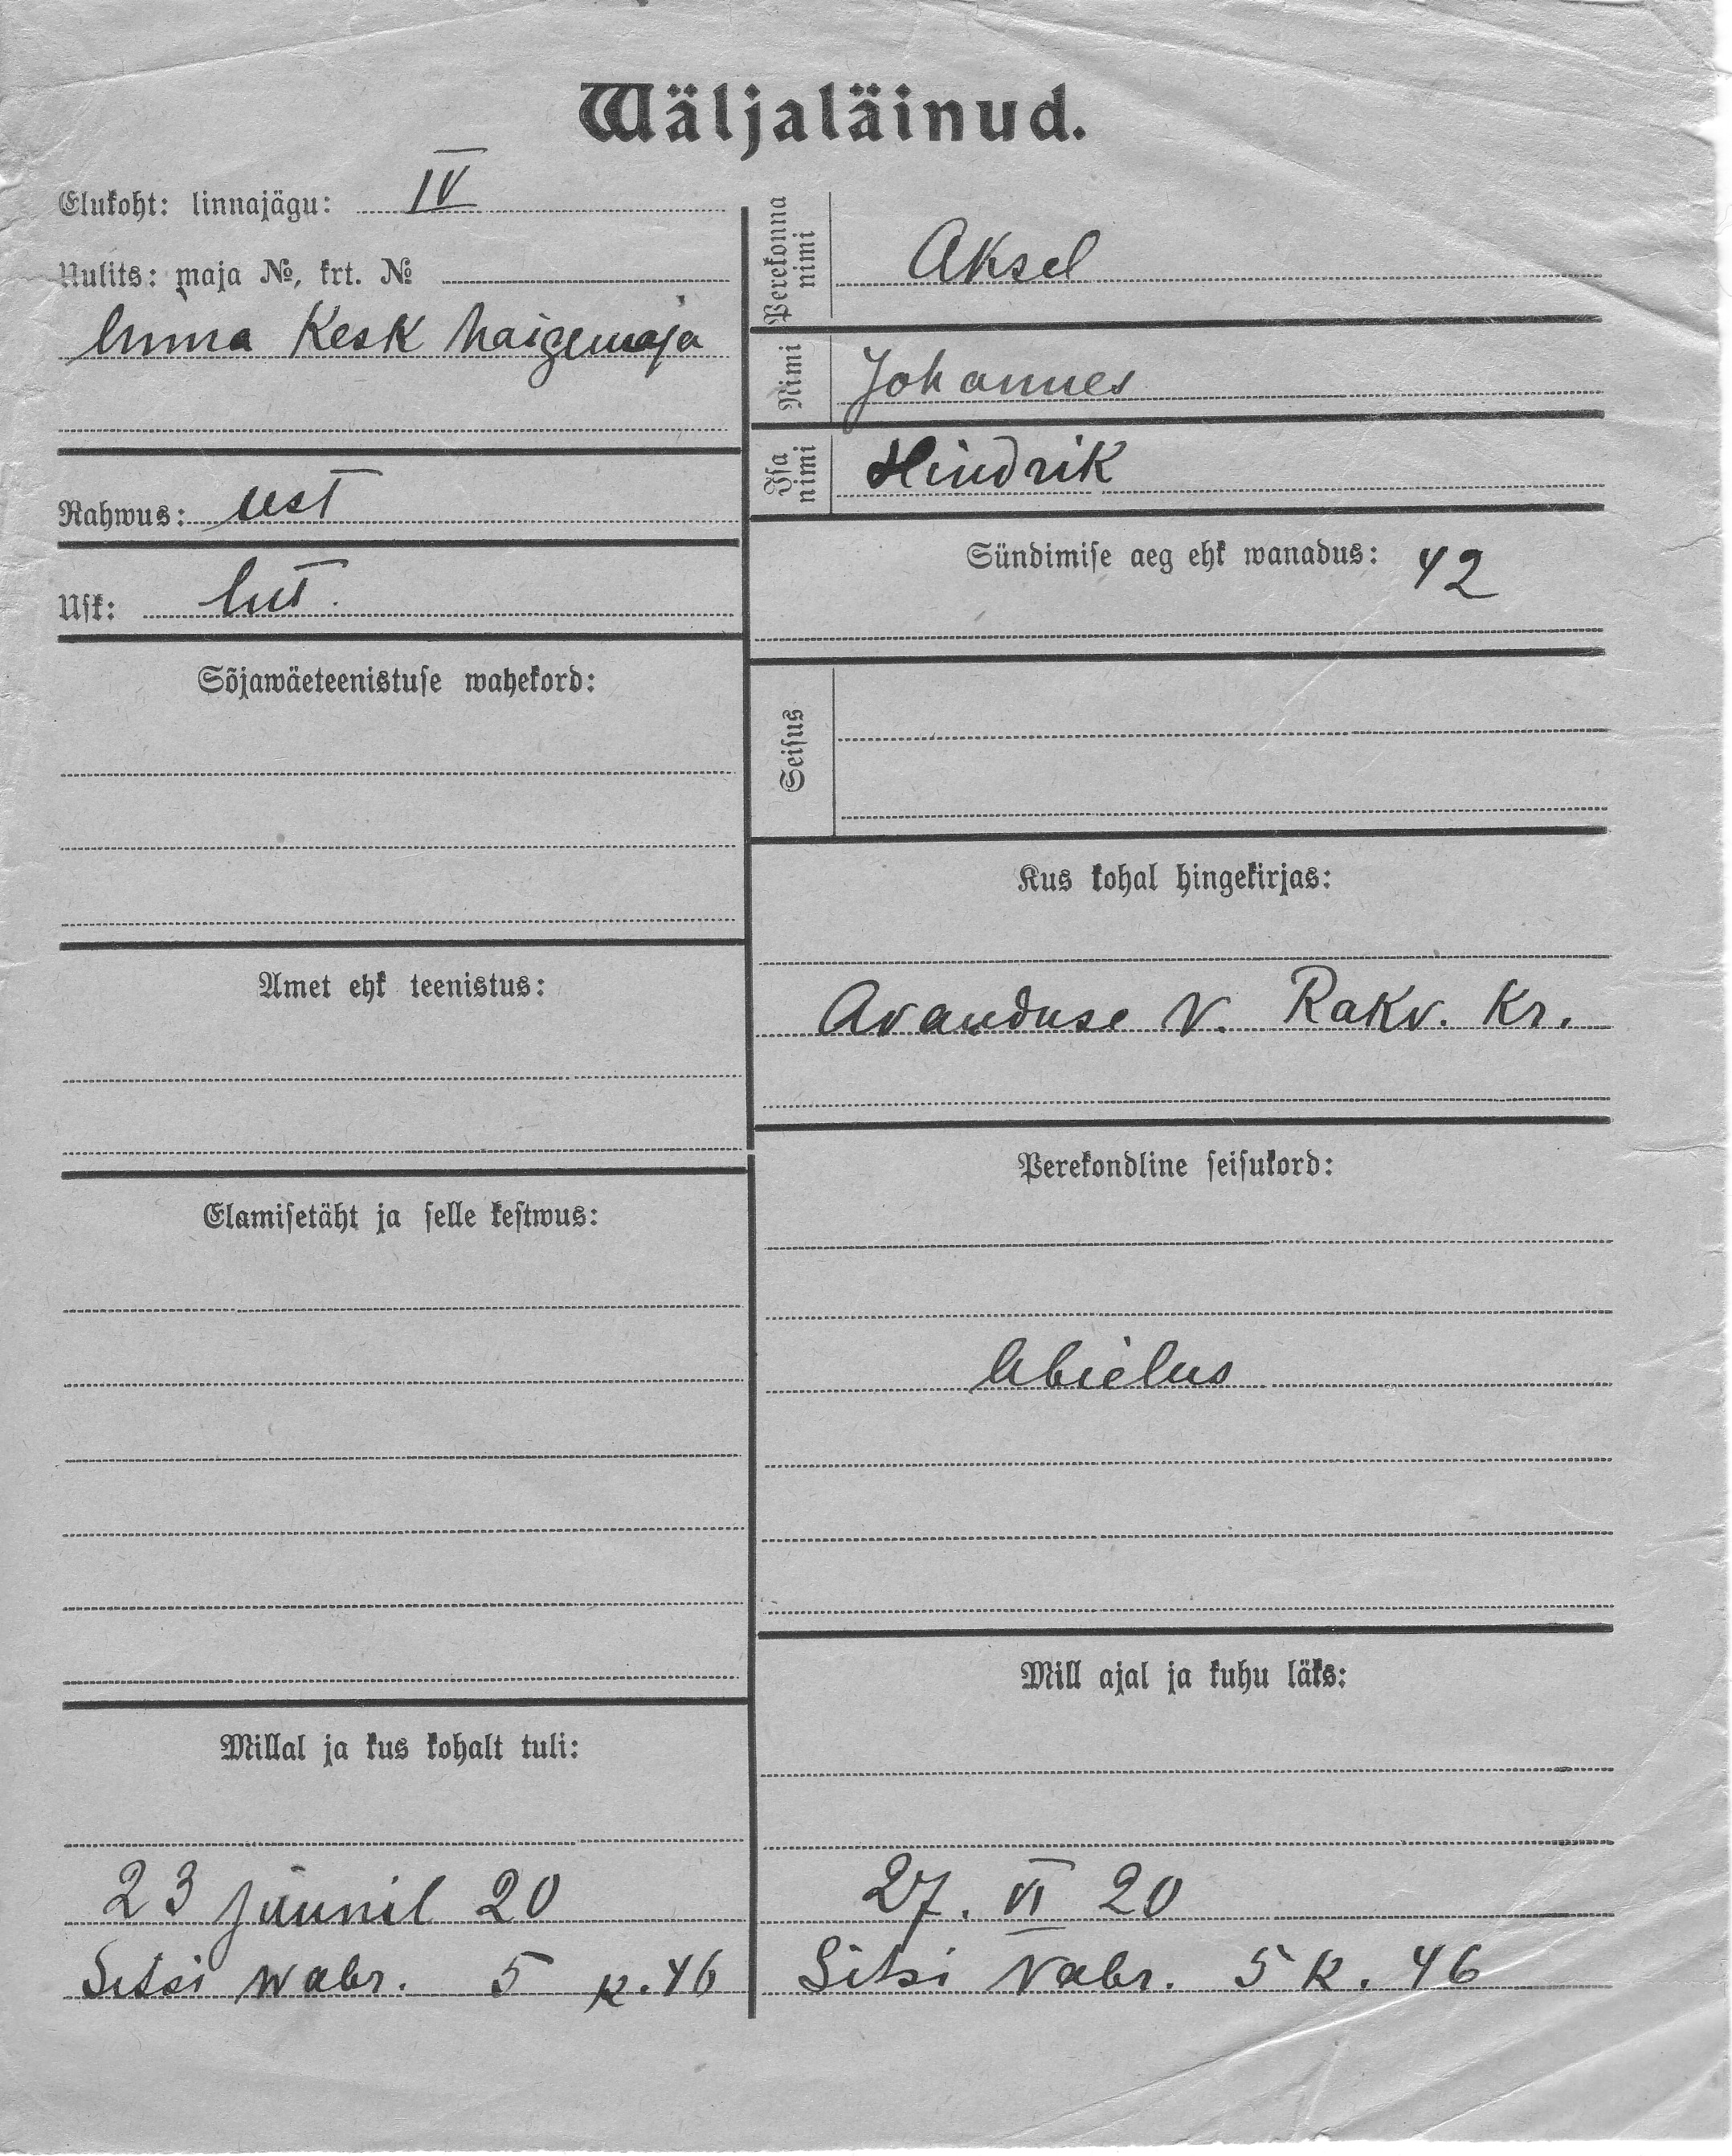 Wäljaläinud.
Elukoht: linnajägu: IV
Uulits: maja №, krt. №
linna Kesk haigemaja
Rahwus: eest
Usk: lut.
Sõjawäeteenistuse wahekord:
Amet ehk teenistus:
Elamisetäht ja selle kestwus:
Millal ja kus kohalt tuli:
23 juunil 20
Sitsi wabr. 5 k. 46
Perekonna nimi Aksel
Nimi Johannes
Isa nimi Hindrik
Sündimise aeg ehk wanadus: 42
Seisus
Kus kohal hingekirjas:
Avanduse v. Rakv. Kr.
Perekondline seisukord:
Abielus
Mill ajal ja kuhu läks:
27. VI 20
Sitsi Vabr. 5 k. 46